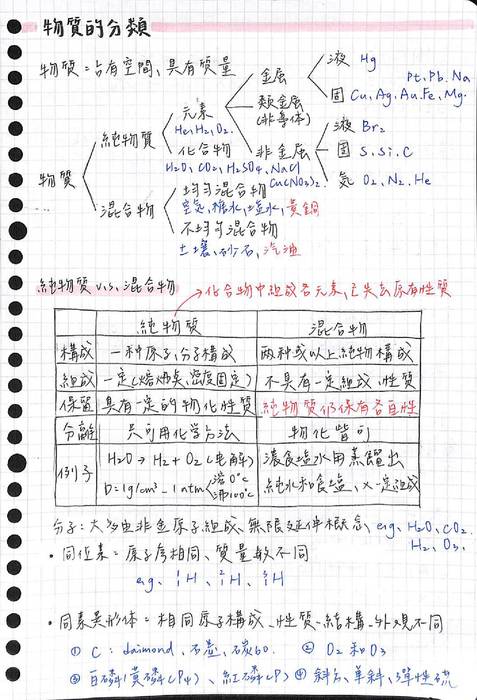 物質的分類
物質=占有空間、具有質量
物質
純物質
元素
He、H₂、O₂.
金屬
液 Hg
固 Pt、Pb、Na
Cu、Ag、Au、Fe、Mg.
類金屬
(半導体)
非金屬
液 Br₂
固 S、Si、C
氣 O₂、N₂、He
化合物
H₂O、CO₂、H₂SO₄、NaCl
Cu(NO₃)₂.
混合物
均勻混合物
空氣、糖水、塩水、黃銅
不均勻混合物
土壤、砂石、汽油
純物質 v.s. 混合物
→化合物中組成各元素,已失去原有性質
純物質 混合物
構成 一种原子、分子構成 两种或以上純物構成
組成 一定(熔沸點、密度固定) 不具有一定組成、性質
保留 具有一定的物化性質 純物質仍保有各自性
分離 只可用化学方法 物化皆可
例子 H₂O → H₂ + O₂ (电解) 濃食塩水用蒸餾出
D=1g/cm³ - 1atm 溶0°c 沸100°c 純水和食塩、x一定組成
分子:大多由非金原子組成、無限延伸概念、e.g. H₂O、CO₂、
H₂、O₃.
・同位素=原子序相同、質量数不同
e.g. ¹₁H、²₁H、³₁H
・同素異形体=相同原子構成、性質、結構、外观不同
① C: daimond、石墨、碳60. ② O₂和O₃
③ 白磷(黃磷(P₄)、紅磷(P) ④ 斜方、單斜、彈性硫